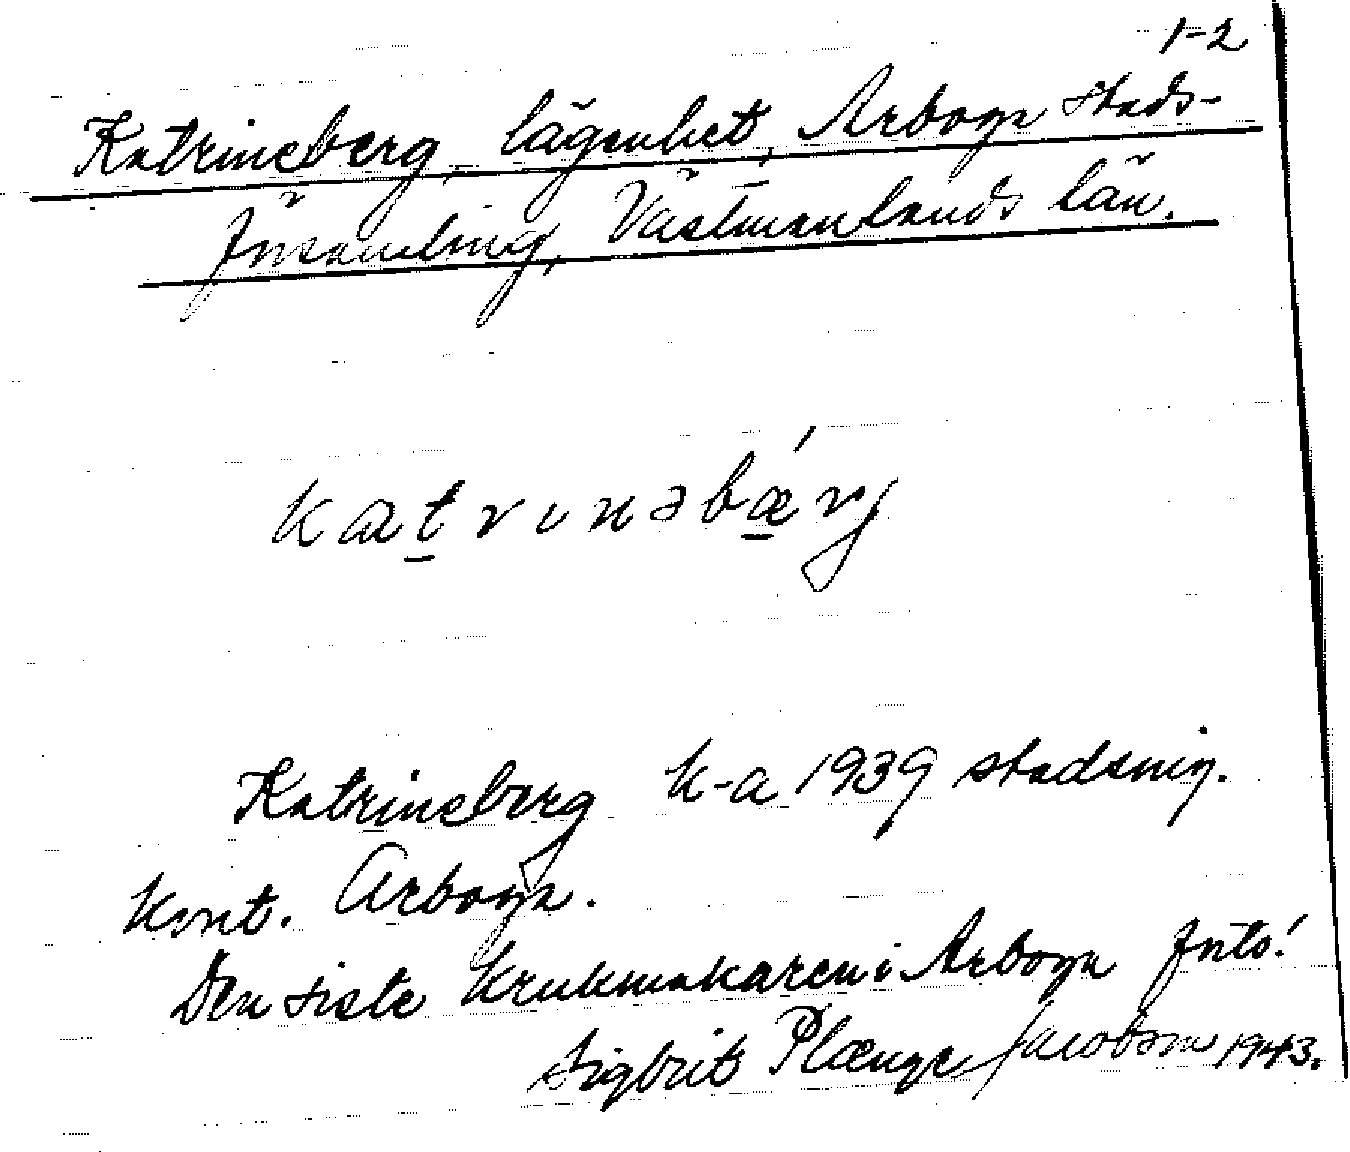 1-2
Katrineberg, lägenhet, Arboga stads-
församling, Västmanlands län.
katrinəbǽrj
Katrineberg k-a 1939 stadsing.
kont. Arboga.
Den siste krukmakaren i Arboga foto!
Sigbrit Plænge Jacobson 1943.